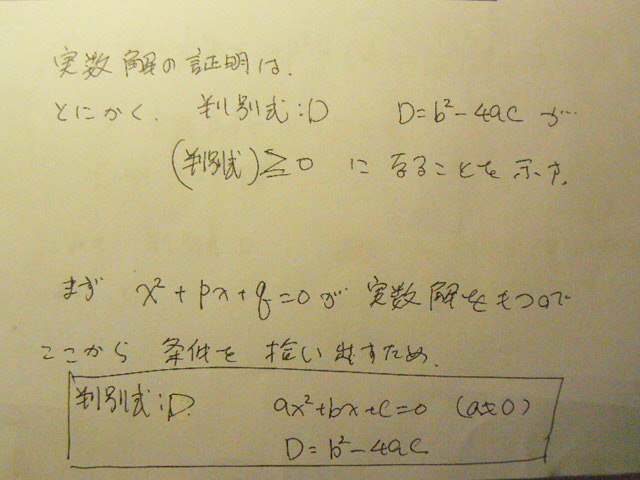 実数解の証明は、
とにかく、判別式:D D=b²-4acが…
(判別式)≧0 になることを示す.
まず x²+px+q=0が実数解をもつので
ここから条件を拾い出すため.
判別式:D. ax²+bx+c=0 (a≠0)
D=b²-4ac